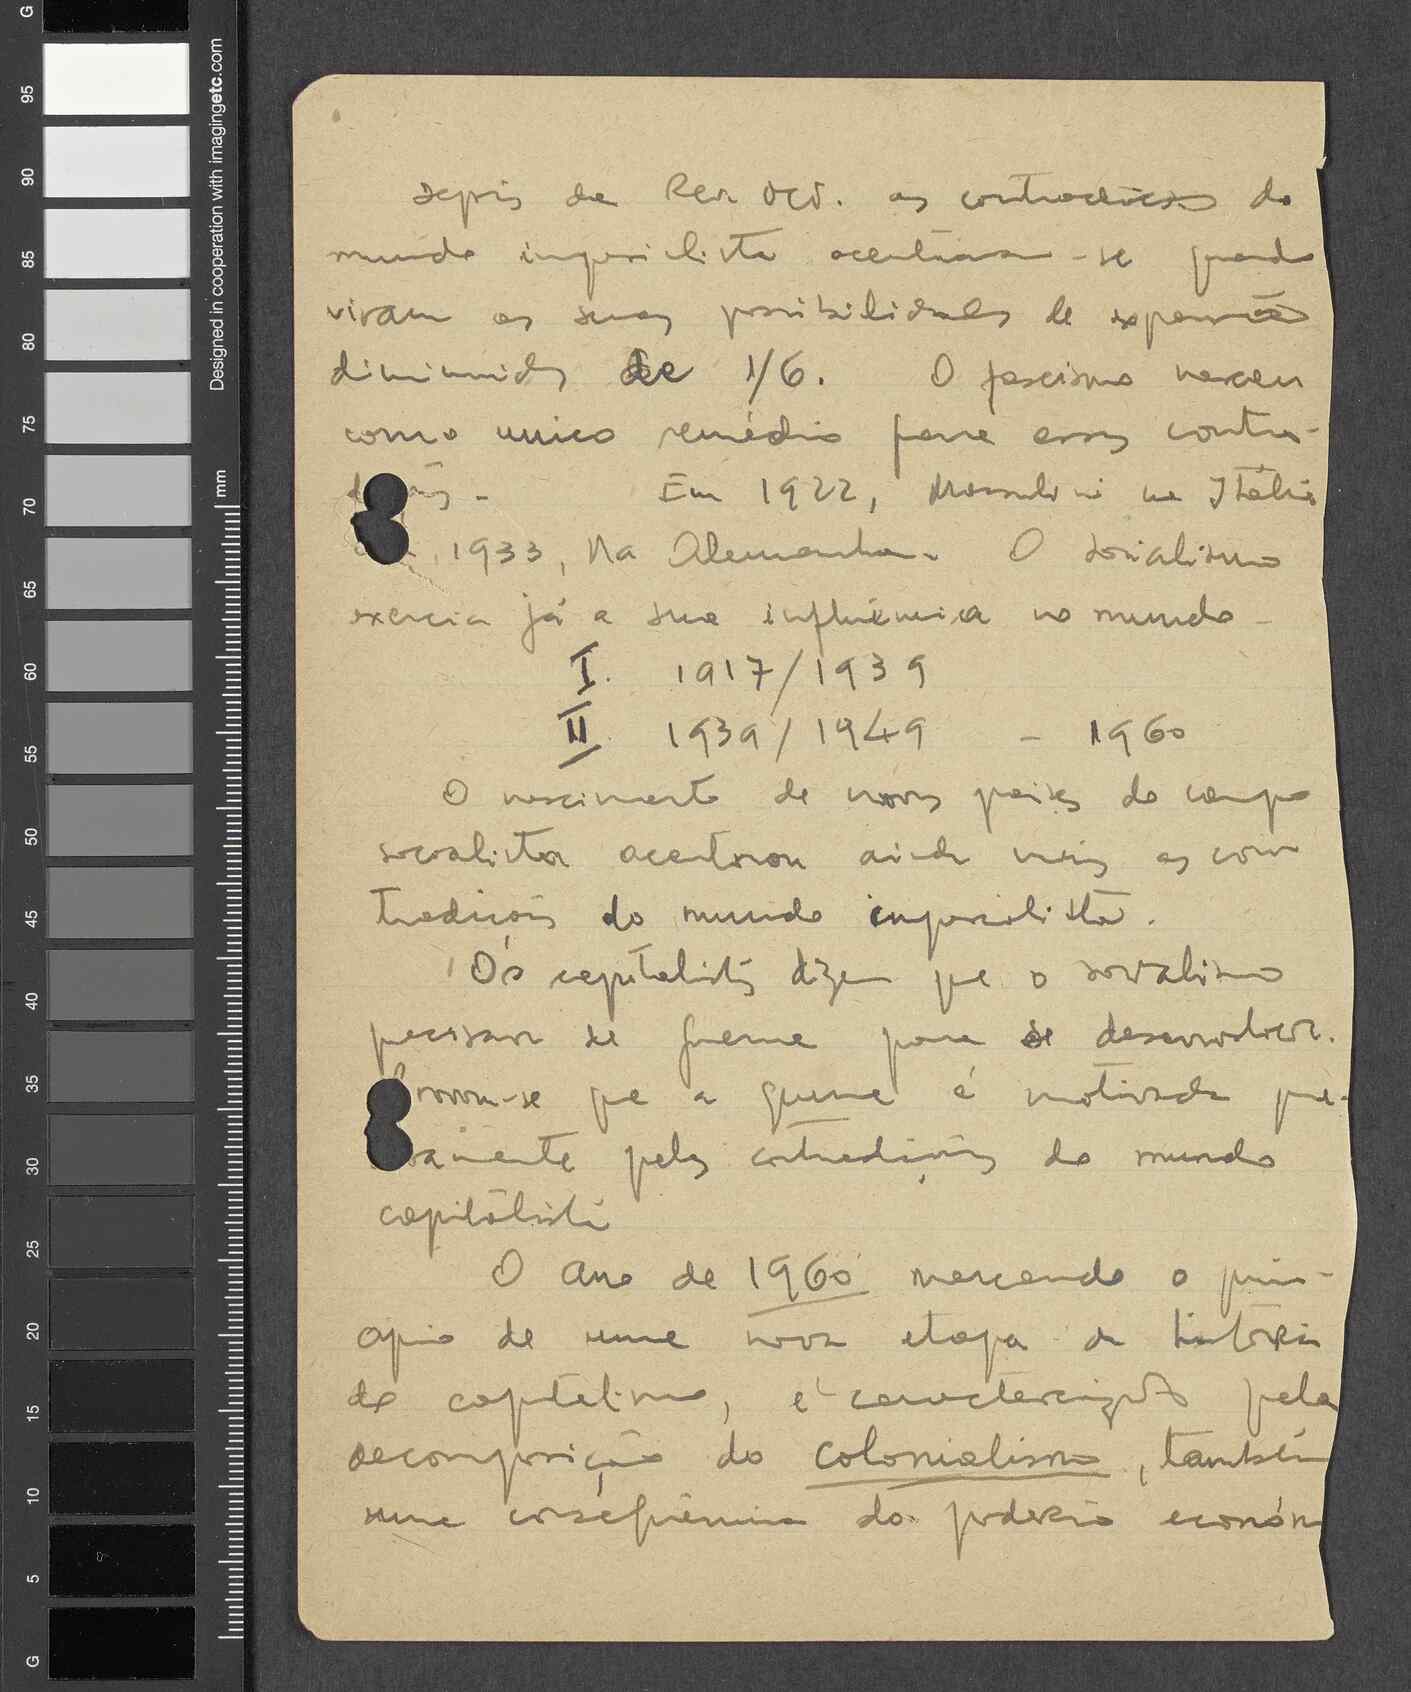 G
95
90
85
80
75
70
65
60
55
50
45
40
35
30
25
20
15
10
5
G
Designed in cooperation with imagingetc.com
mm
depois da Rev Oct. as contradições do
mundo imperialista acentuam-se quando
viram as suas possibilidades de expansão
diminuidas de 1/6. O fascismo nasceu
como unico remédio para essas contra-
Em 1922, Mussolini na Itália
1933, Na Alemanha. O socialismo
exercia já a sua influência no mundo -
I. 1917/1939
II 1939/1949 - 1960
O nascimento de novos países do campo
socialista acentuou ainda mais as con
tradições do mundo imperialista.
Os capitalistas dizem que o socialismo
precisava de guerra para se desenvolver.
Provou-se que a guerra é motivada pre-
pelas contradições do mundo
capitalista
O ano de 1960 marcando o prin-
cipio de uma nova etapa da história
do capitalismo, é caracterizado pela
decomposição do colonialismo, também
uma consequência do poderio económ